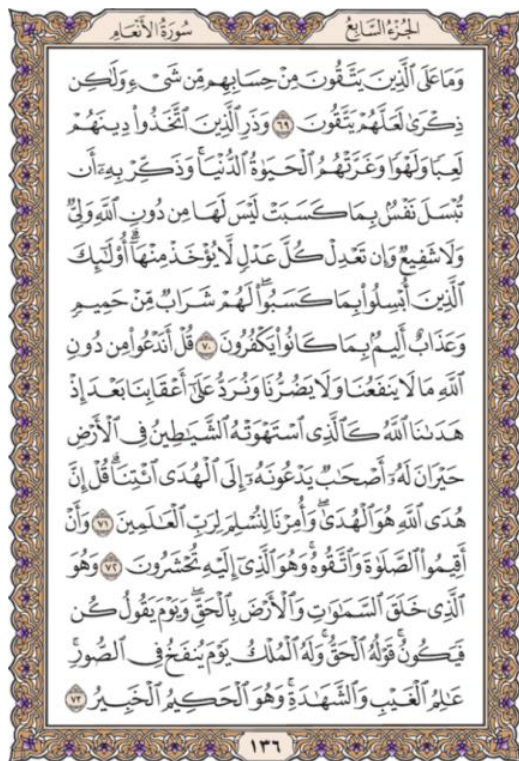 الجُزْءُ السَّابِعُ سُورَةُ الأَنْعَامِ
وَمَا عَلَى ٱلَّذِينَ يَتَّقُونَ مِنْ حِسَابِهِم مِّن شَىْءٍ وَلَٰكِن
ذِكْرَىٰ لَعَلَّهُمْ يَتَّقُونَ ٦٩ وَذَرِ ٱلَّذِينَ ٱتَّخَذُوا۟ دِينَهُمْ
لَعِبًا وَلَهْوًا وَغَرَّتْهُمُ ٱلْحَيَوٰةُ ٱلدُّنْيَا ۚ وَذَكِّرْ بِهِۦٓ أَن
تُبْسَلَ نَفْسٌۢ بِمَا كَسَبَتْ لَيْسَ لَهَا مِن دُونِ ٱللَّهِ وَلِىٌّ
وَلَا شَفِيعٌ وَإِن تَعْدِلْ كُلَّ عَدْلٍ لَّا يُؤْخَذْ مِنْهَآ ۗ أُو۟لَٰٓئِكَ
ٱلَّذِينَ أُبْسِلُوا۟ بِمَا كَسَبُوا۟ ۖ لَهُمْ شَرَابٌ مِّنْ حَمِيمٍ
وَعَذَابٌ أَلِيمٌۢ بِمَا كَانُوا۟ يَكْفُرُونَ ٧٠ قُلْ أَنَدْعُوا۟ مِن دُونِ
ٱللَّهِ مَا لَا يَنفَعُنَا وَلَا يَضُرُّنَا وَنُرَدُّ عَلَىٰٓ أَعْقَابِنَا بَعْدَ إِذْ
هَدَىٰنَا ٱللَّهُ كَٱلَّذِى ٱسْتَهْوَتْهُ ٱلشَّيَٰطِينُ فِى ٱلْأَرْضِ
حَيْرَانَ لَهُۥٓ أَصْحَٰبٌ يَدْعُونَهُۥٓ إِلَى ٱلْهُدَى ٱئْتِنَا ۗ قُلْ إِنَّ
هُدَى ٱللَّهِ هُوَ ٱلْهُدَىٰ ۖ وَأُمِرْنَا لِنُسْلِمَ لِرَبِّ ٱلْعَٰلَمِينَ ٧١ وَأَنْ
أَقِيمُوا۟ ٱلصَّلَوٰةَ وَٱتَّقُوهُ ۚ وَهُوَ ٱلَّذِىٓ إِلَيْهِ تُحْشَرُونَ ٧٢ وَهُوَ
ٱلَّذِى خَلَقَ ٱلسَّمَٰوَٰتِ وَٱلْأَرْضَ بِٱلْحَقِّ ۖ وَيَوْمَ يَقُولُ كُن
فَيَكُونُ ۚ قَوْلُهُ ٱلْحَقُّ ۚ وَلَهُ ٱلْمُلْكُ يَوْمَ يُنفَخُ فِى ٱلصُّورِ ۚ
عَٰلِمُ ٱلْغَيْبِ وَٱلشَّهَٰدَةِ ۚ وَهُوَ ٱلْحَكِيمُ ٱلْخَبِيرُ ٧٣
١٣٦